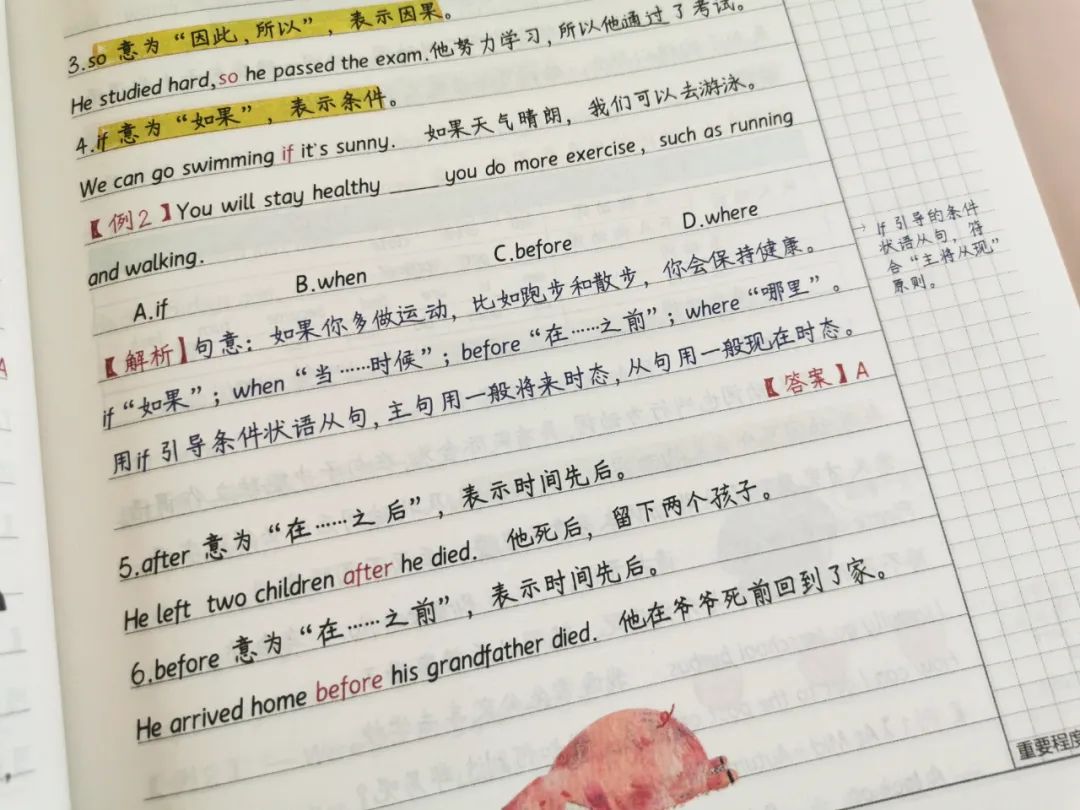 3.so 意为“因此，所以”，表示因果。
He studied hard,so he passed the exam.他努力学习，所以他通过了考试。
4.if 意为“如果”，表示条件。
We can go swimming if it's sunny. 如果天气晴朗，我们可以去游泳。
【例2】You will stay healthy ____ you do more exercise, such as running
and walking.
A.if B.when C.before D.where
【解析】句意：如果你多做运动，比如跑步和散步，你会保持健康。
if“如果”；when“当……时候”；before“在……之前”；where“哪里”。
用if 引导条件状语从句，主句用一般将来时态，从句用一般现在时态。
【答案】A
5.after 意为“在……之后”，表示时间先后。
He left two children after he died. 他死后，留下两个孩子。
6.before 意为“在……之前”，表示时间先后。
He arrived home before his grandfather died. 他在爷爷死前回到了家。
if 引导的条件
状语从句，符
合“主将从现”
原则。
重要程度